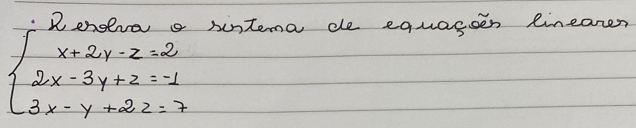 . Resolva o sistema de equações lineares
x+2y-z=2
2x-3y+z=-1
3x-y+2z=7